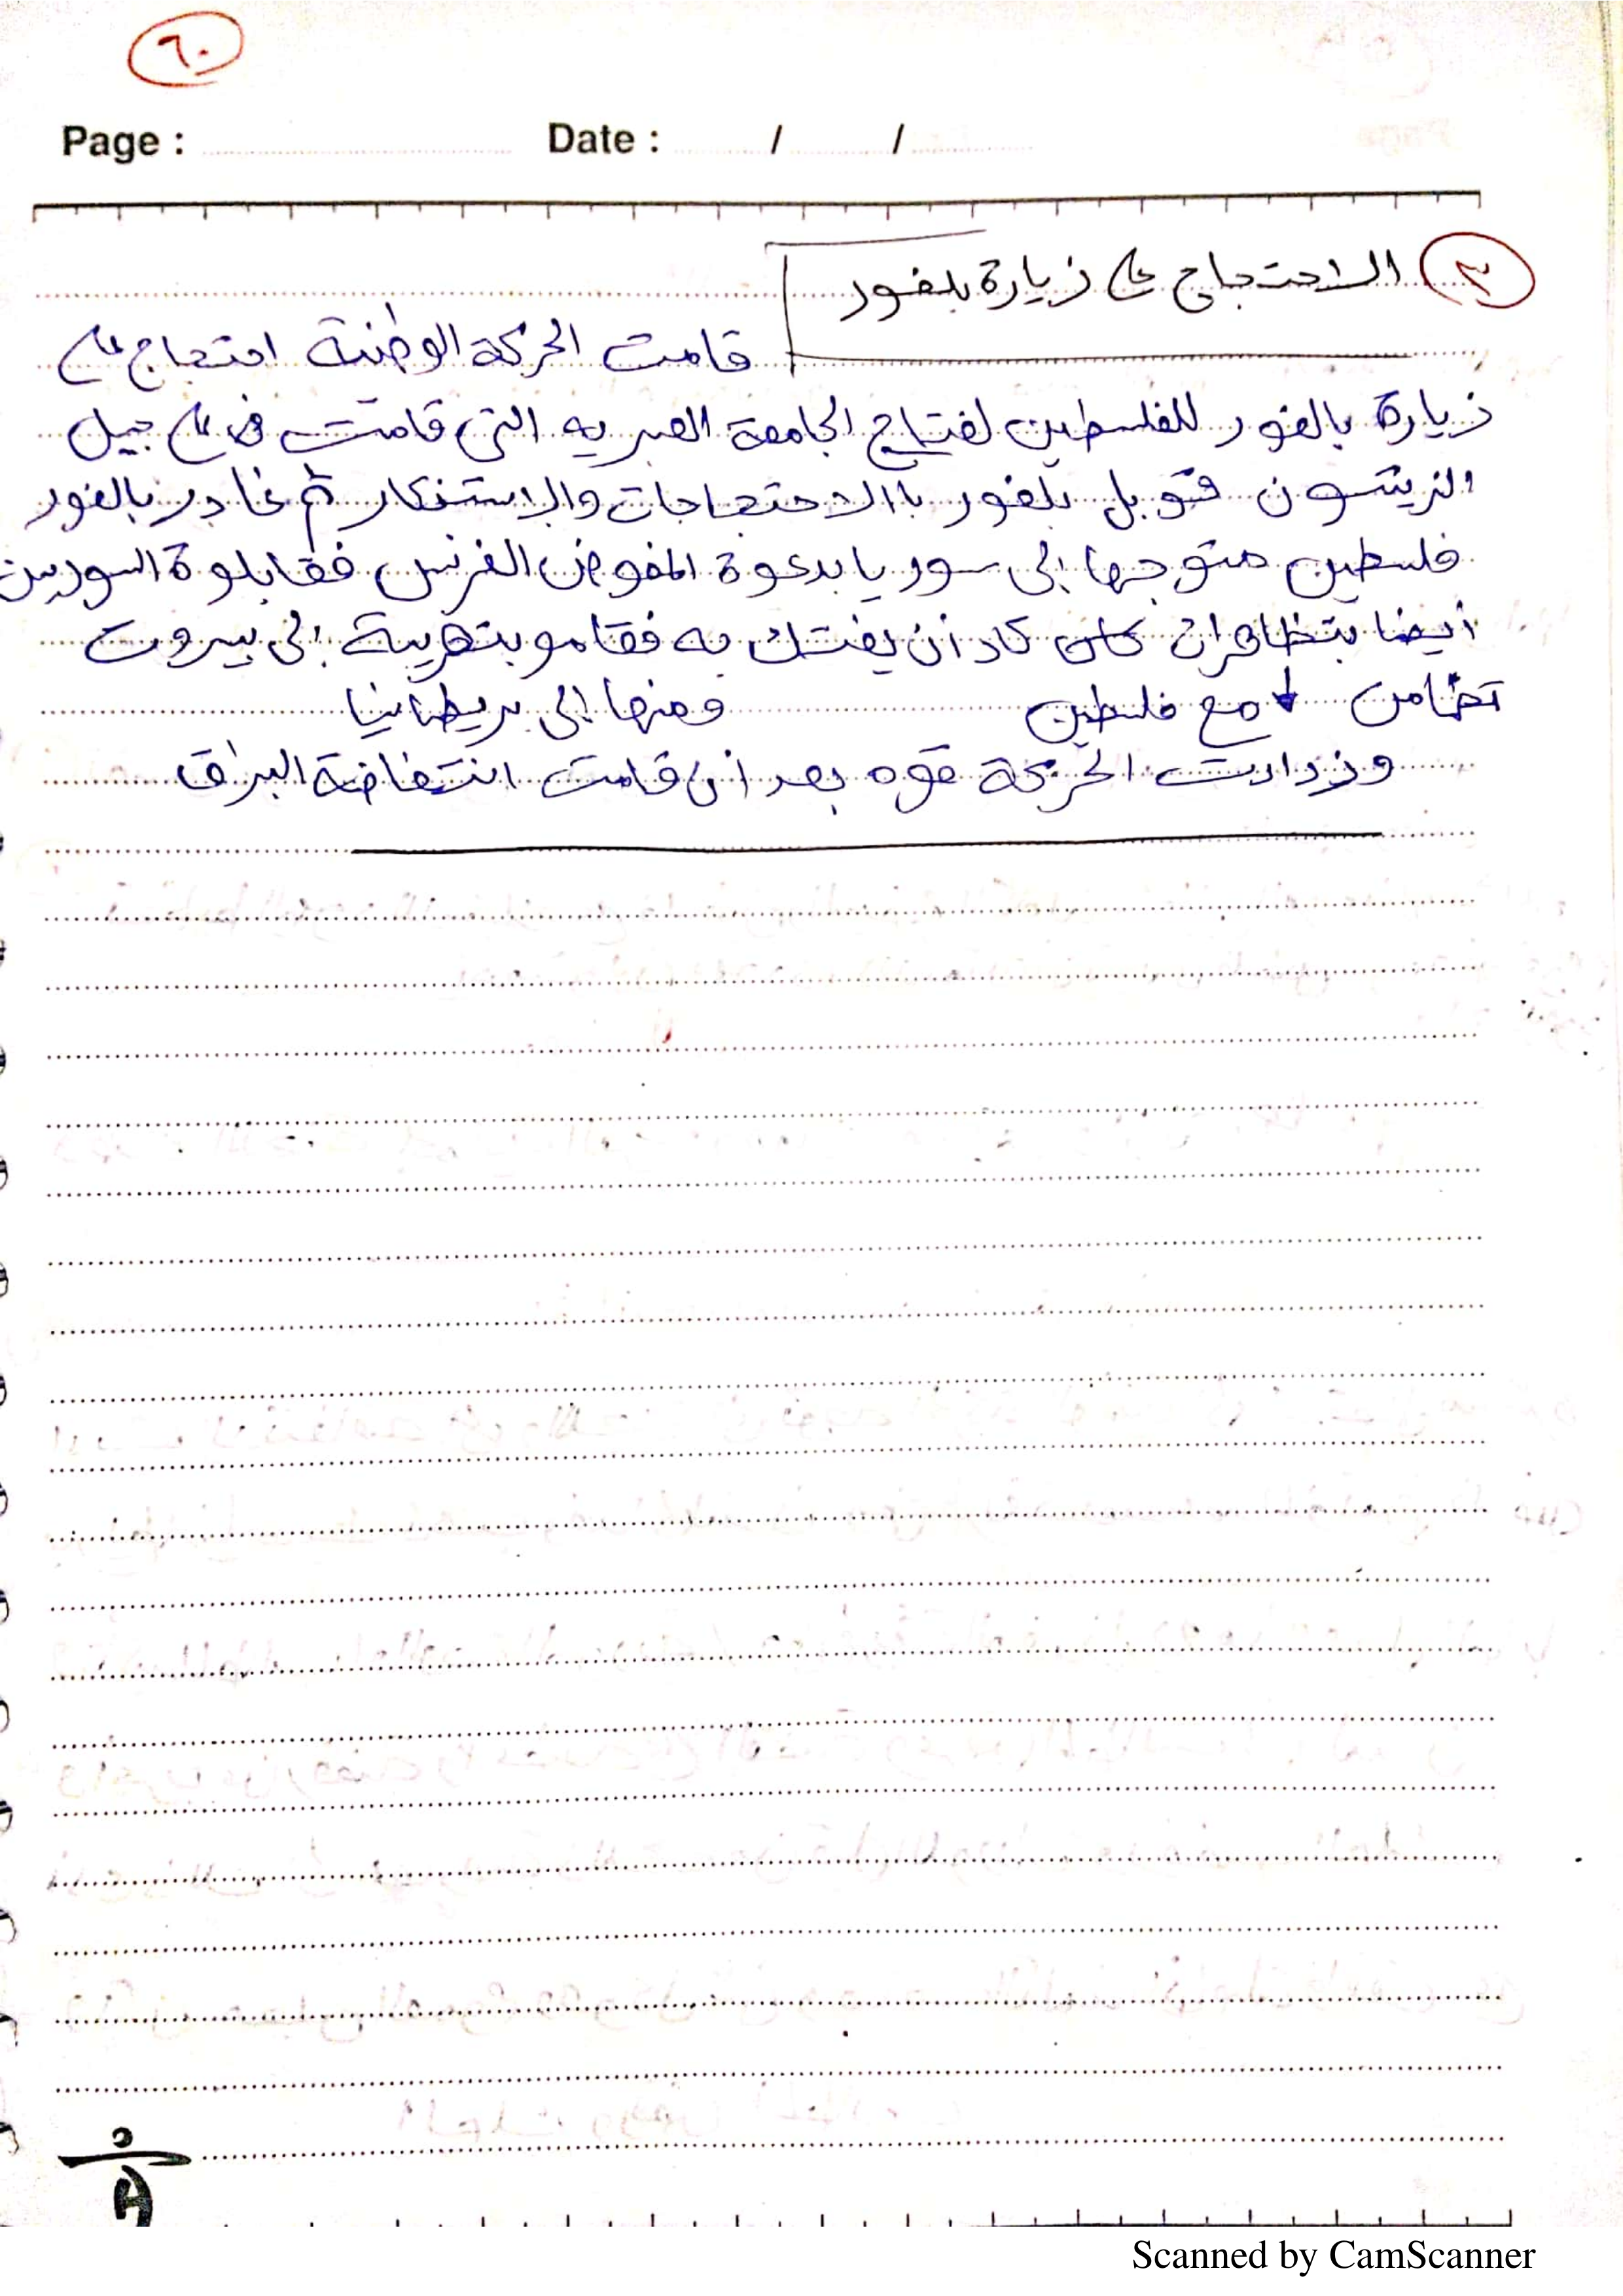 ٦٠
Page : Date : / /
٣ الاحتجاج على زيارة بلفور
قامت الحركة الوطنية احتجاج على
زيارة بالفور للفلسطين لفتتاح الجامعة العبريه التى قامت فى على جبل
الزيتسون قتوبل بلفور باالاحتجاجات والاستنكار ثم غادر بالفور
فلسطين متوجها إلى سوريا بدعوة المفوض الفرنسى فقابلوة السوريين
أيضا بتظاهرات كاد أن يفتك به فقامو بتهريبة إلى بيروت
تضامن مع فلسطين ومنها إلى بريطانيا
وزدادت الحركة قوه بعد ان قامت انتفاضة البراق
Scanned by CamScanner